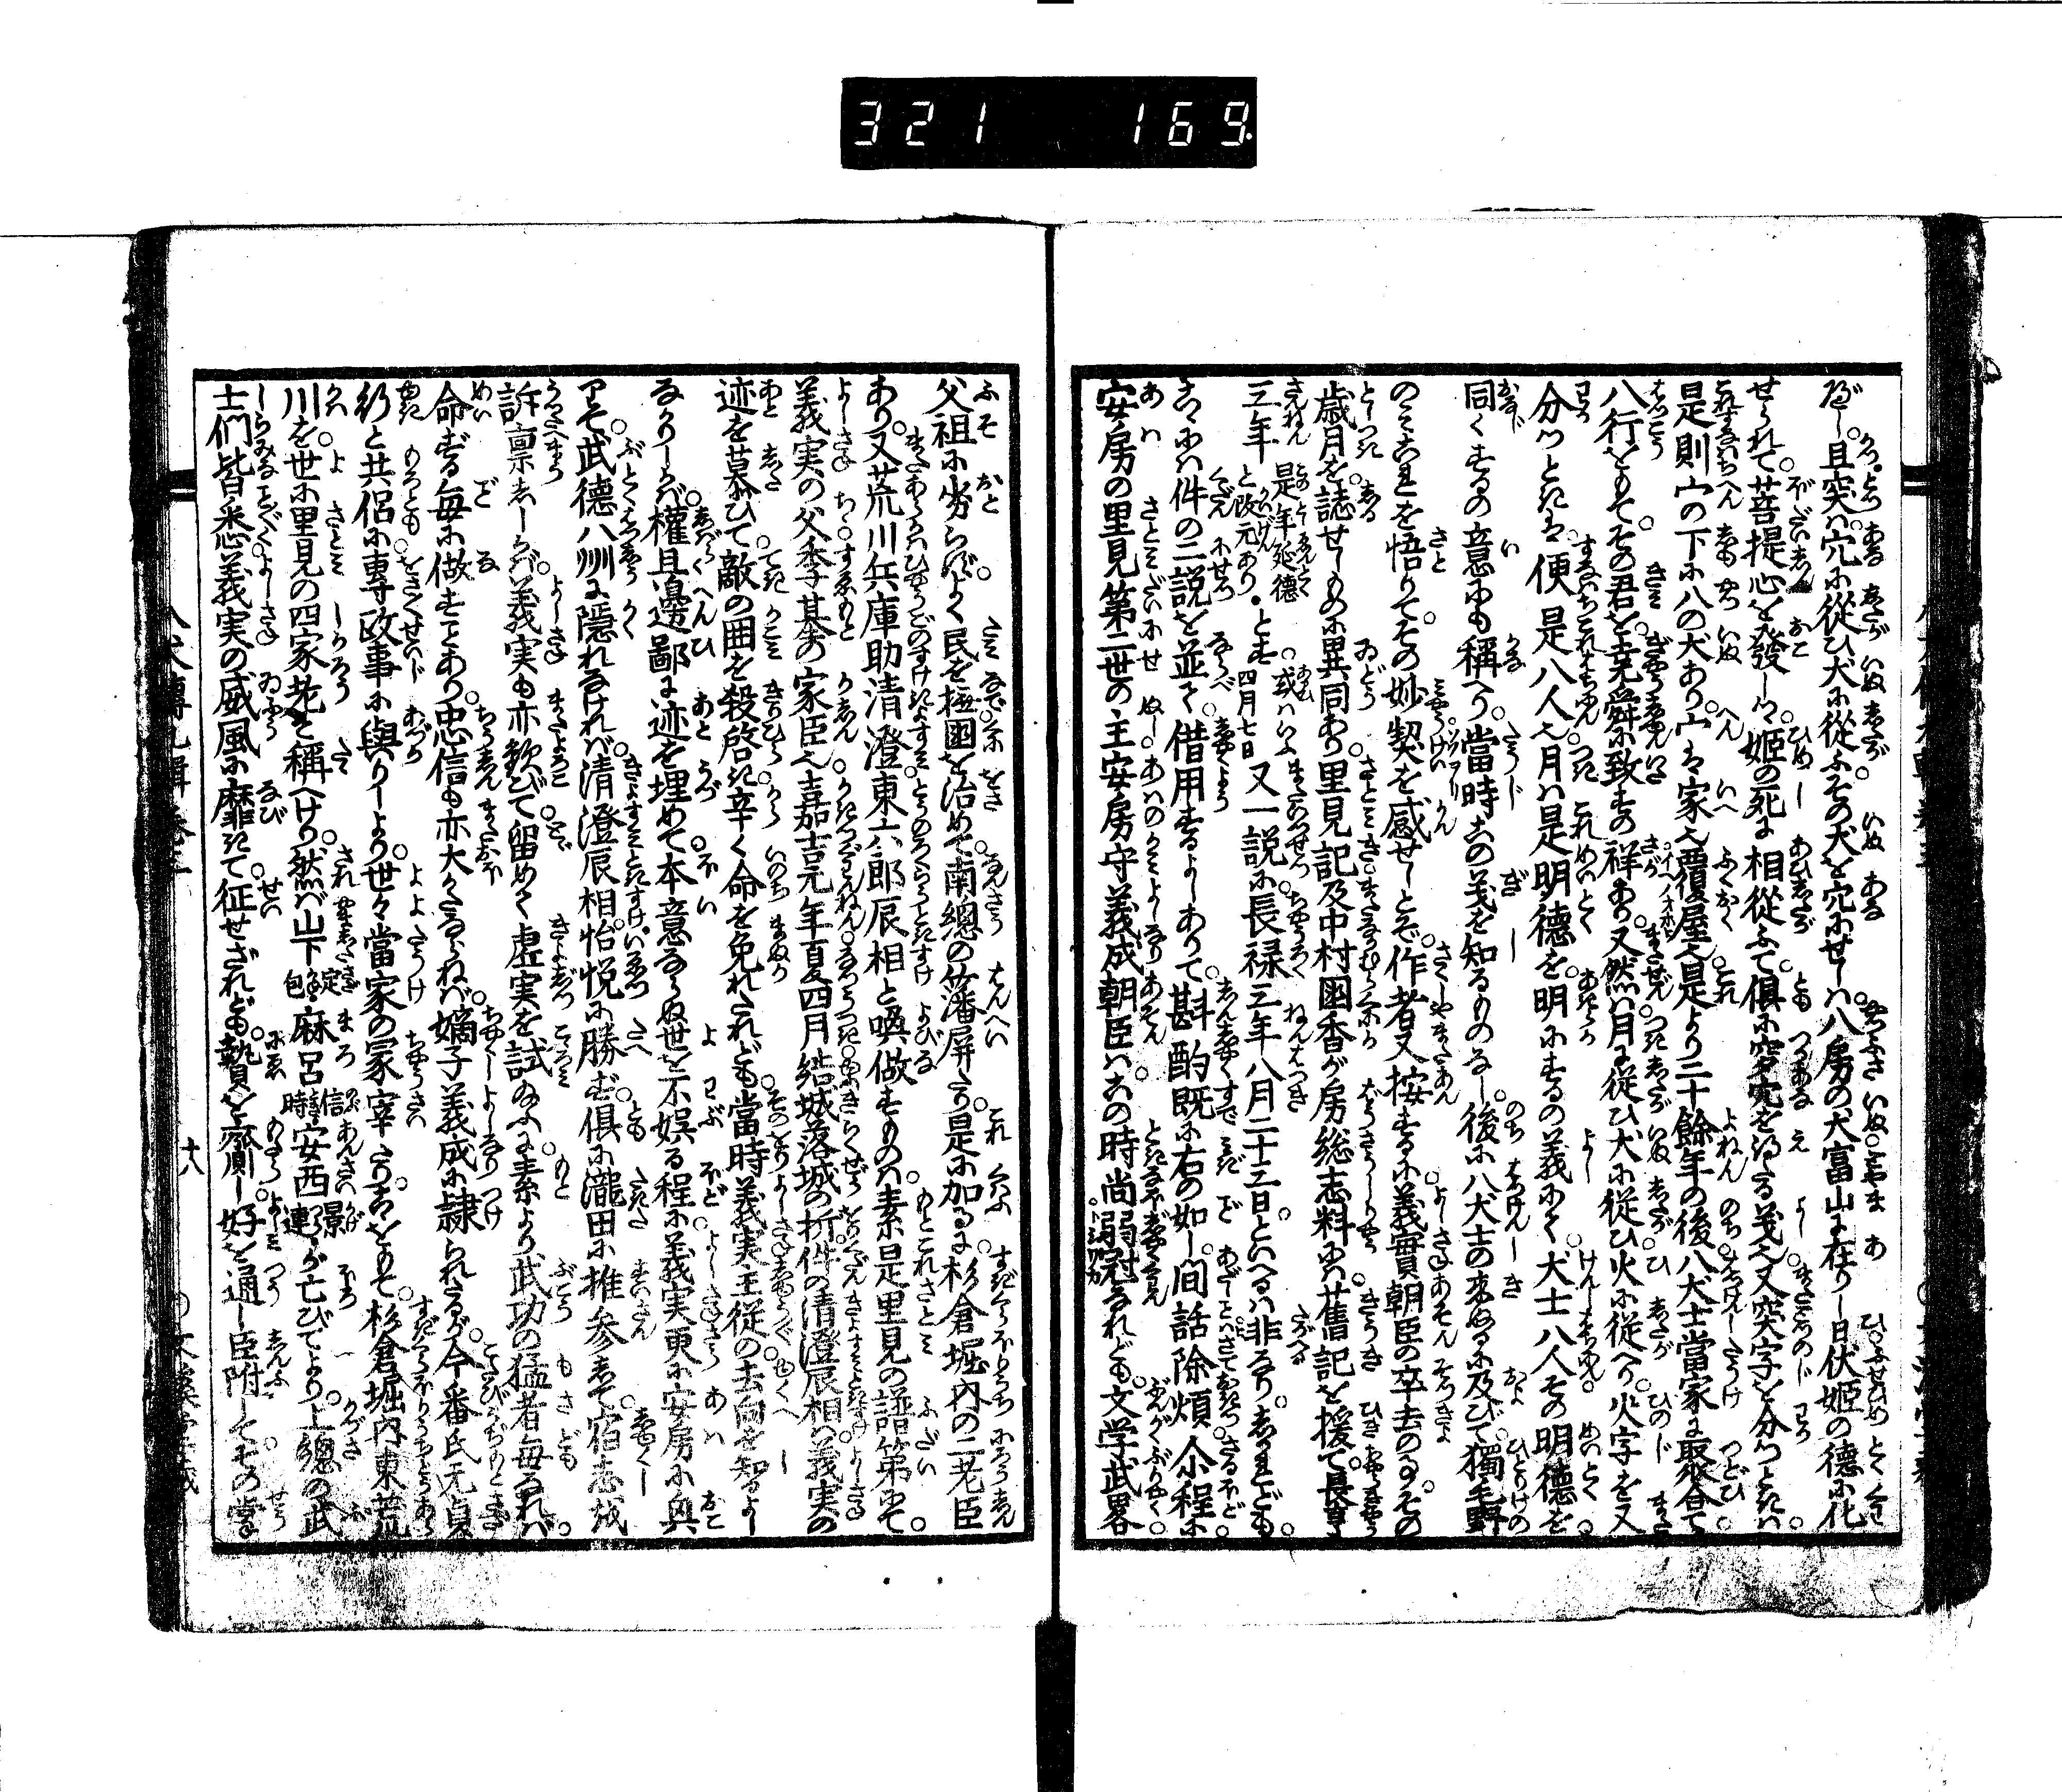 321 169.
べし。且突ハ穴に從ひ犬に從ふ。その犬を穴にせしハ。八房の犬富山に在りし日。伏姫の德に化
せられて。菩提心を發しつ。姫の死に相從ふて。俱に窆穴を得たる義也。又突字を分つときハ。
是則宀の下に八の犬あり。宀ハ家也覆屋也。是より二十餘年の後。八犬士當家に聚合て。
八行をもて。その君を堯舜に致すの祥あり。又然ハ月に從ひ犬に從ひ火に從へり。火字を又
分つときハ。便是八人也。月ハ是明德を。明にするの義にて。犬士八人その明德を。
同くするの意にも稱へり。當時この義を知るものなし。後に八犬士の來ぬるに及びて。獨毛野
のミこれを悟りて。その妙契を感せしとぞ。作者又按するに。義實朝臣の卒去の事。その
歲月を。誌せしものに異同あり。里見記及中村國香が房総志料にハ。舊記を援て。長享
三年 是年延德と改元あり。とす 四月七日。或ハいふ 又一説に。長禄三年八月二十三日。といへるハ非なり。しかれども。
こゝにハ件の二説を並て。借用するよしありて。斟酌既に右の如し。間話除煩。尒程に
安房の里見第二世の主。安房守義成朝臣ハ。この時尚弱冠なれども。文学武畧
父祖に劣らず。よく民を撫國を治めて。南總の藩屏たり。是に加るに。杉倉堀内の二老臣
あり。又荒川兵庫助清澄。東六郎辰相と喚做すものハ。素是里見の譜第にて。
義実の父季基の家臣也。嘉吉元年夏四月。結城落城の折。件の清澄辰相ハ。義実の
迹を慕ひて。敵の囲を殺啓き。辛く命を免れたれども。當時義実主從の。去向を知るよし
なかりしかバ。權且邊鄙に迹を埋めて。本意ならぬ世を不娯る程に。義実更に安房に興
りて。武德八州に隱れなければ。清澄辰相。怡悦に勝ず。俱に瀧田に推參して。宿志を
訴稟しゝかバ。義実も亦歡びて。留めて虛実を試給ふに。素より武功の猛者每なれバ。
命ずる每に做すことあり。忠信も亦大かたならねバ。嫡子義成に隷られたるが。今番氏元貞
行と共侶に。專政事に與りしより。世々當家の家宰たり。こをもて。杉倉堀内東荒
川を。世に里見の四家老と稱へけり。然バ山下定包。麻呂信時。安西景連が亡びてより。上總の武
士們。皆悉義実の威風に靡きて。征せざれども。贄を齎し。好を通し臣附して。その掌に
八犬傳九輯卷三
十八